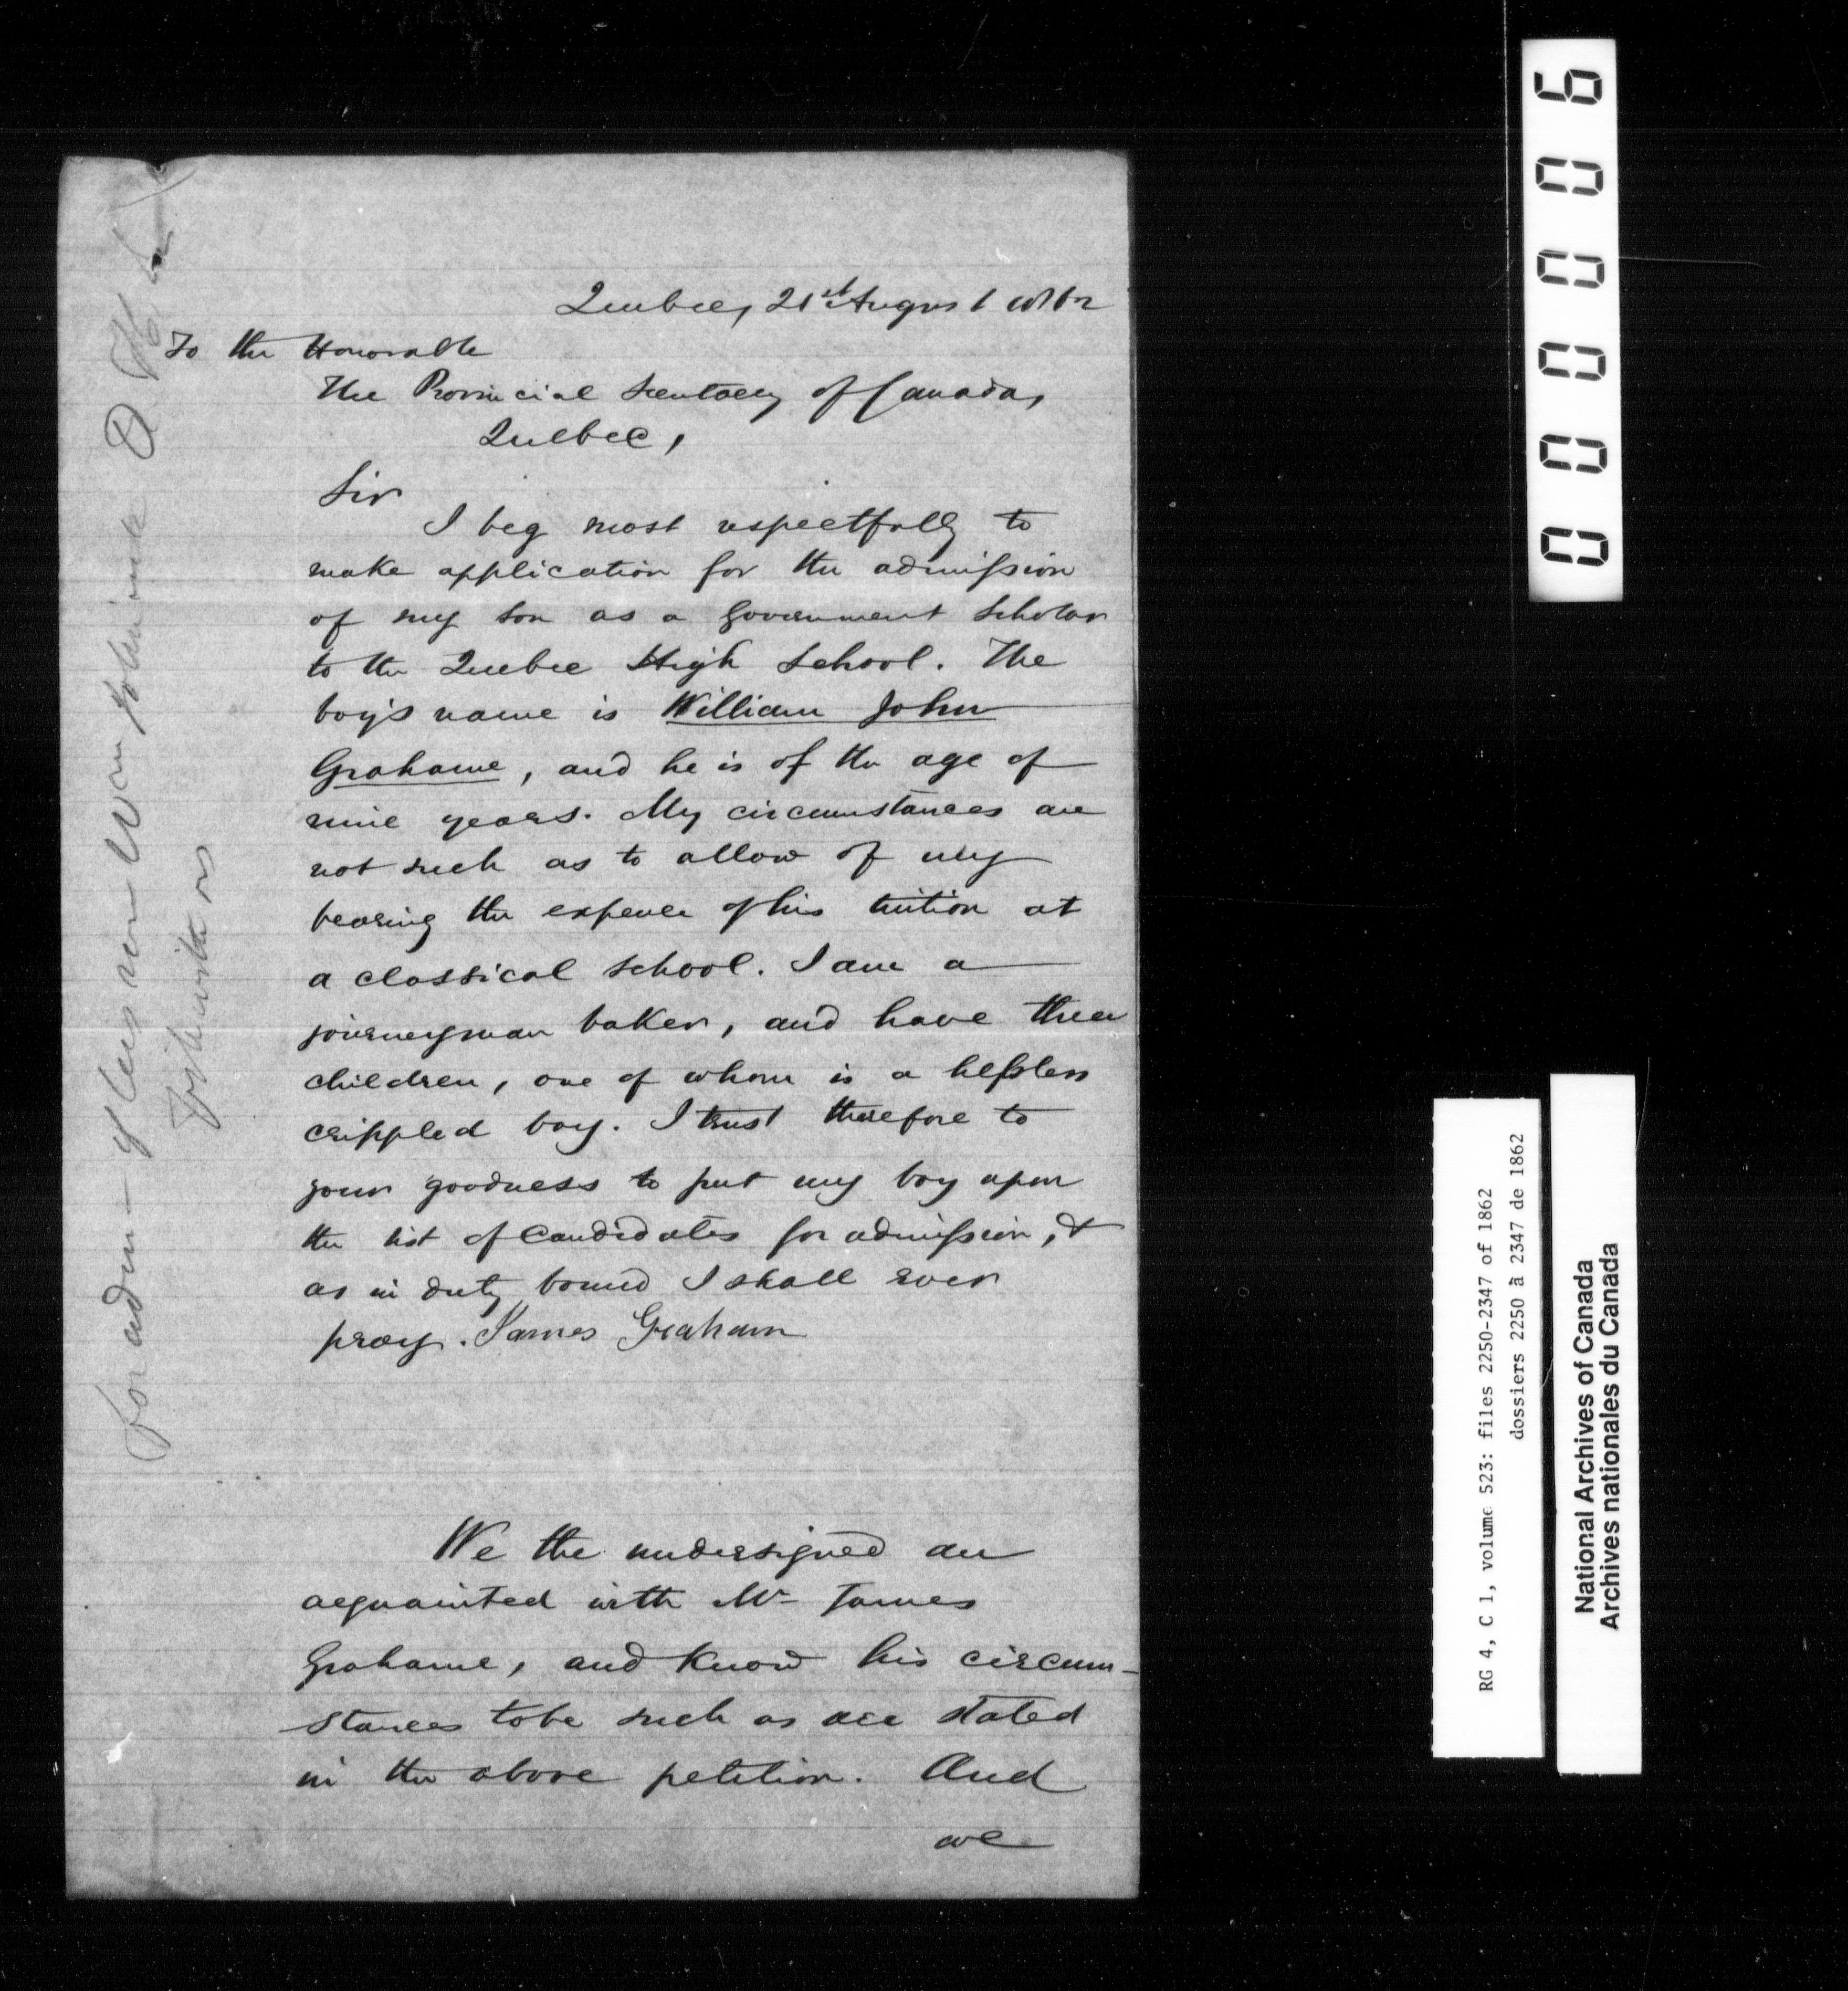 Quebec, 21st August 1862
To the Honorable
The Provincial Secretary of Canada,
Quebec,
Sir
I beg most respectfully to
make application for the admission
of my son as a Government Scholar
to the Quebec High School. The
boy's name is William John
Grahame, and he is of the age of
nine years. My circumstances are
not such as to allow of my
bearing the expence of his tuition at
a classical school. I am a
journeyman baker, and have three
children, one of whom is a helpless
crippled boy. I trust therefore to
your goodness to put my boy upon
the list of candidates for admission, &
as in duty bound I shall ever
pray. James Graham
We the undersigned are
acquainted with Mr James
Grahame, and know his circum-
stances to be such as are stated
in the above petition. And
we
for adm - of his son Wm John
000006
RG 4, C 1, volume 523: files 2250-2347 of 1862
dossiers 2250 à 2347 de 1862
National Archives of Canada
Archives nationales du Canada